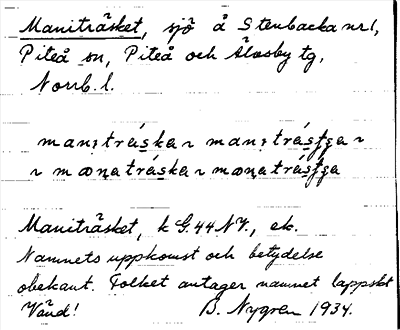 Maniträsket, sjö å Stenbacka nr 1,
Piteå sn, Piteå och Älvsby tg,
Norrb. l.
manıtráska ~ manıtrásʃga ~
~ mænatráska ~ mænatrásʃga
Maniträsket, k G.44 NV., ek.
Namnets uppkomst och betydelse
obekant. Folket antager namnet lappskt
Vänd! B. Nygren 1934.